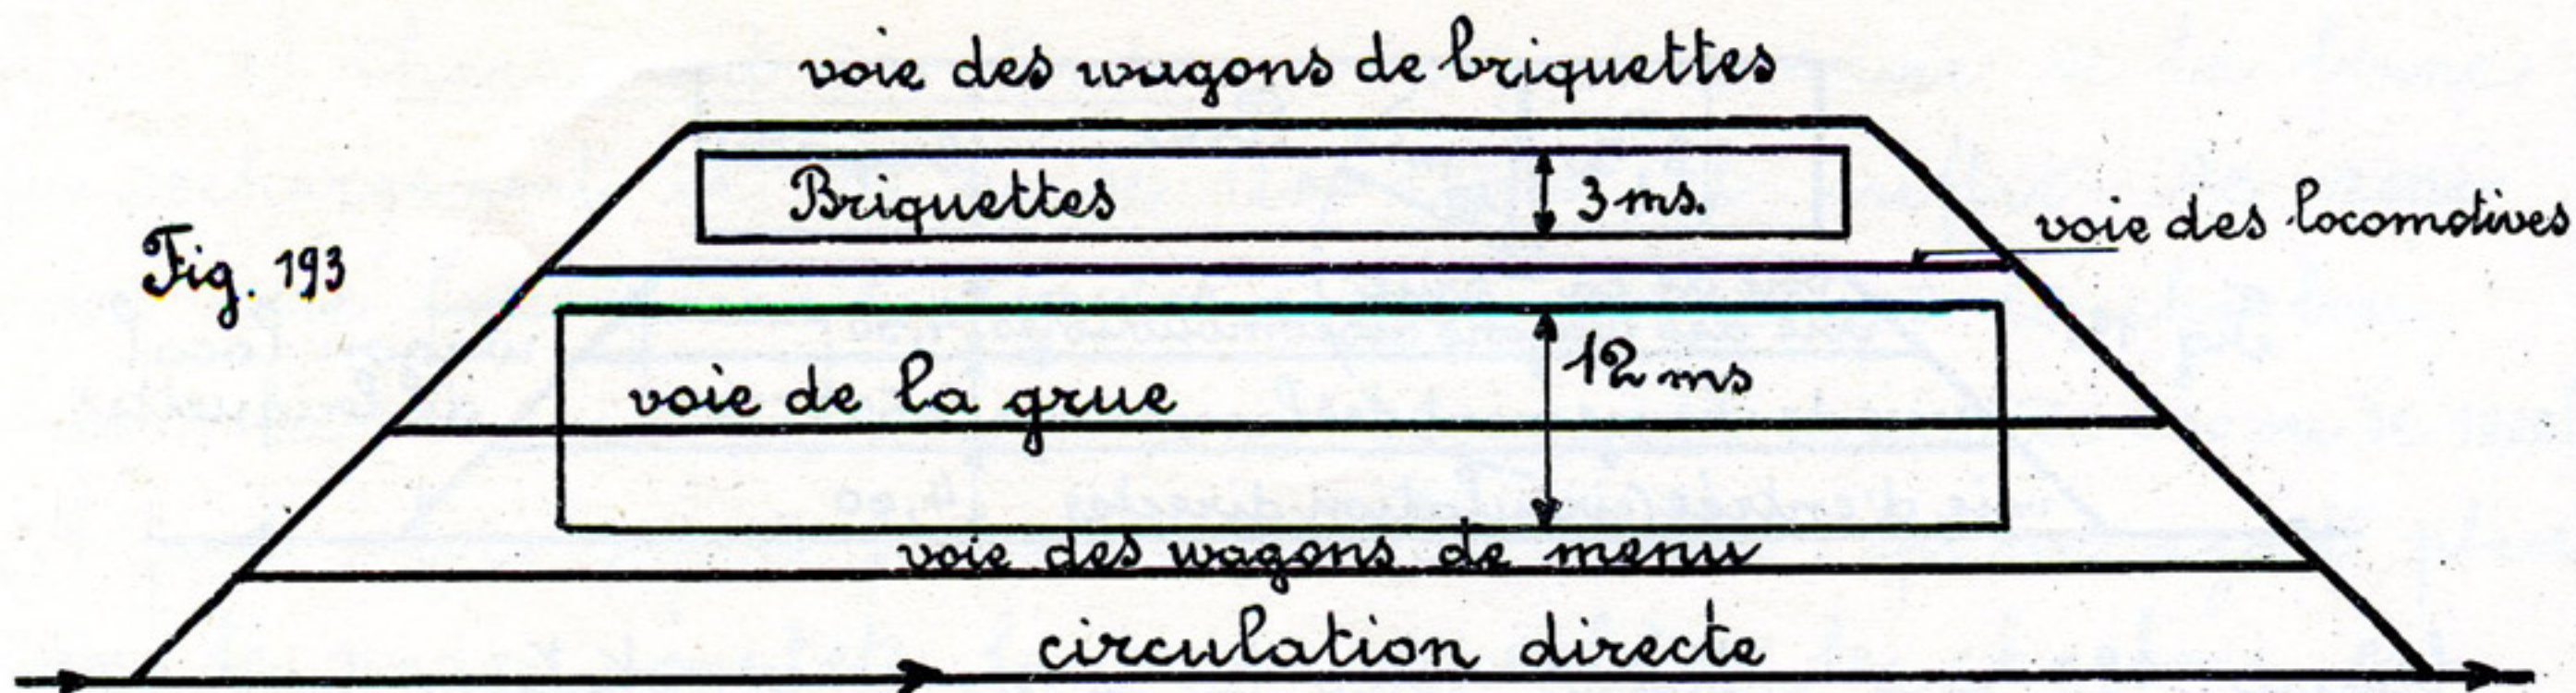 voie des wagons de briquettes
Briquettes
3 ms.
voie des locomotives
Fig. 193
12 ms
voie de la grue
voie des wagons de menu
circulation directe